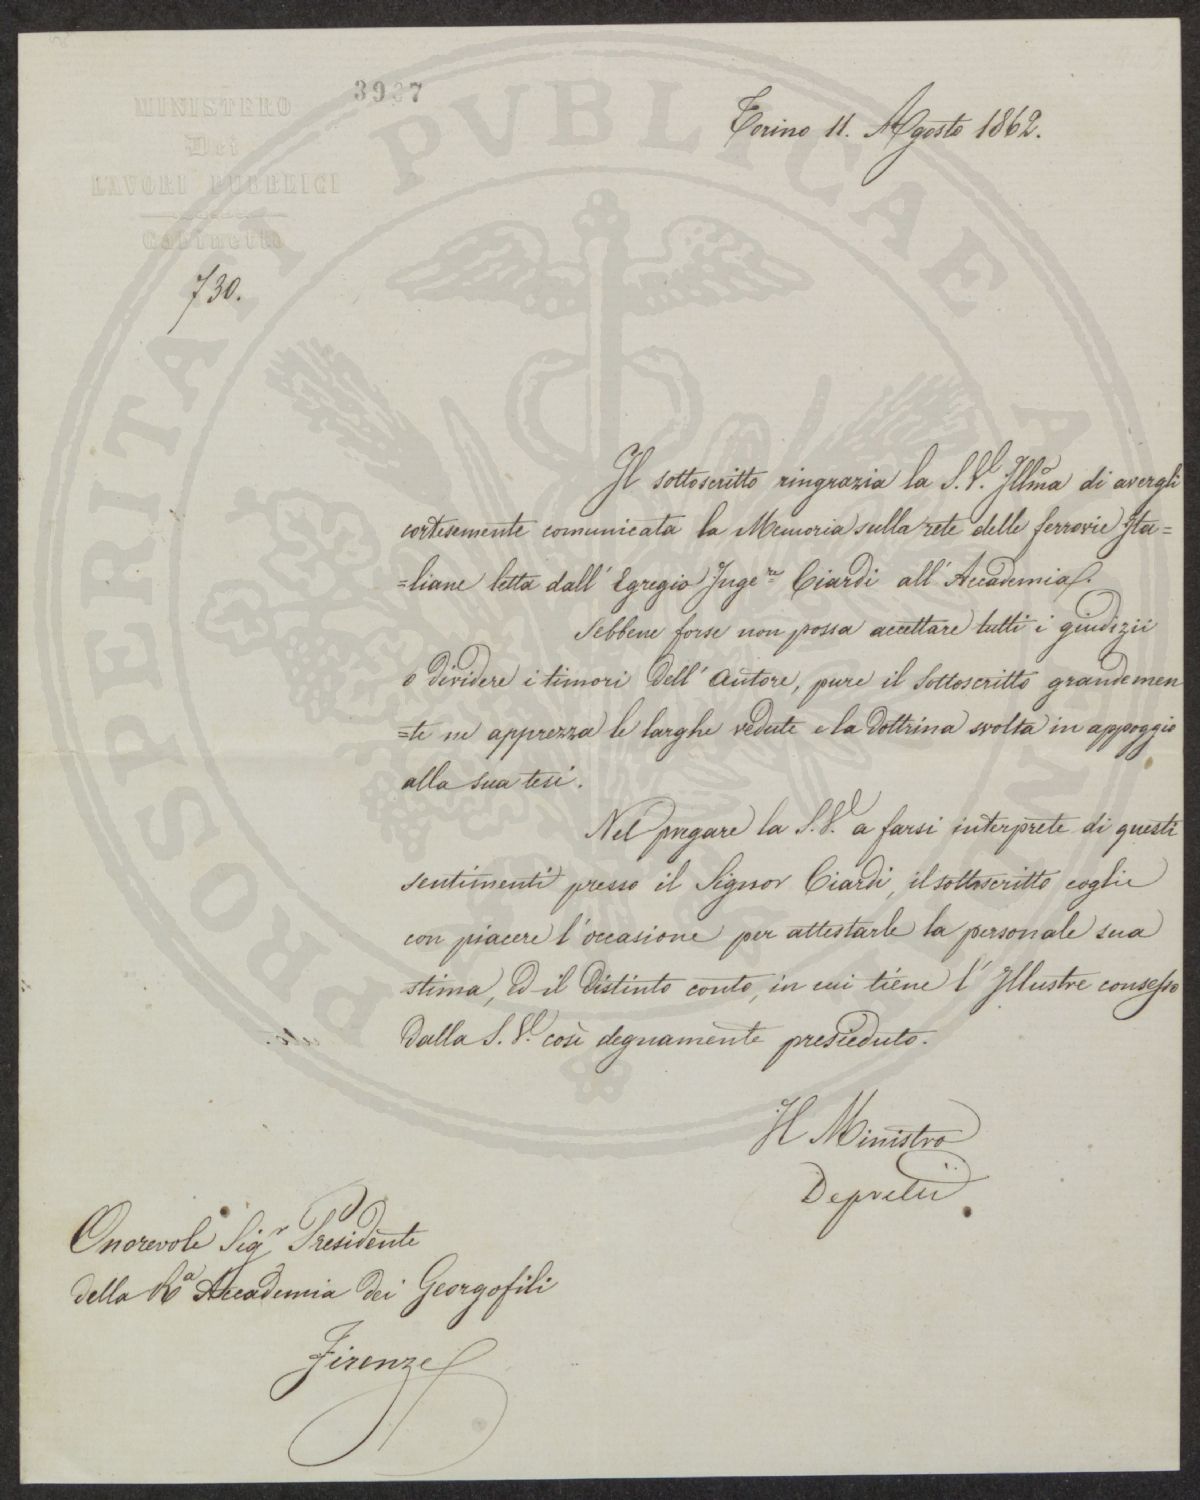 MINISTERO
Dei
LAVORI PUBBLICI
Gabinetto
3987
Torino 11. Agosto 1862.
730.
PROSPERITATI PVBLICAE
Il sottoscritto ringrazia la S. V. Illma di avergli
cortesemente comunicata la Memoria sulla rete delle ferrovie Ita=
=liane letta dall' Egregio Inge.re Ciardi all' Accademia.
Sebbene forse non possa accettare tutti i giudizii
o dividere i timori dell' Autore, pure il sottoscritto grandemen
=te ne apprezza le larghe vedute e la dottrina svolta in appoggio
alla sua tesi.
Nel pregare la S. V. a farsi interprete di questi
sentimenti presso il Signor Ciardi, il sottoscritto coglie
con piacere l'occasione per attestarle la personale sua
stima, ed il distinto conto, in cui tiene l' Illustre consesso
dalla S. V. così degnamente presieduto.
Il Ministro
Depretis
Onorevole Sigr. Presidente
della Ra Accademia dei Georgofili
Firenze